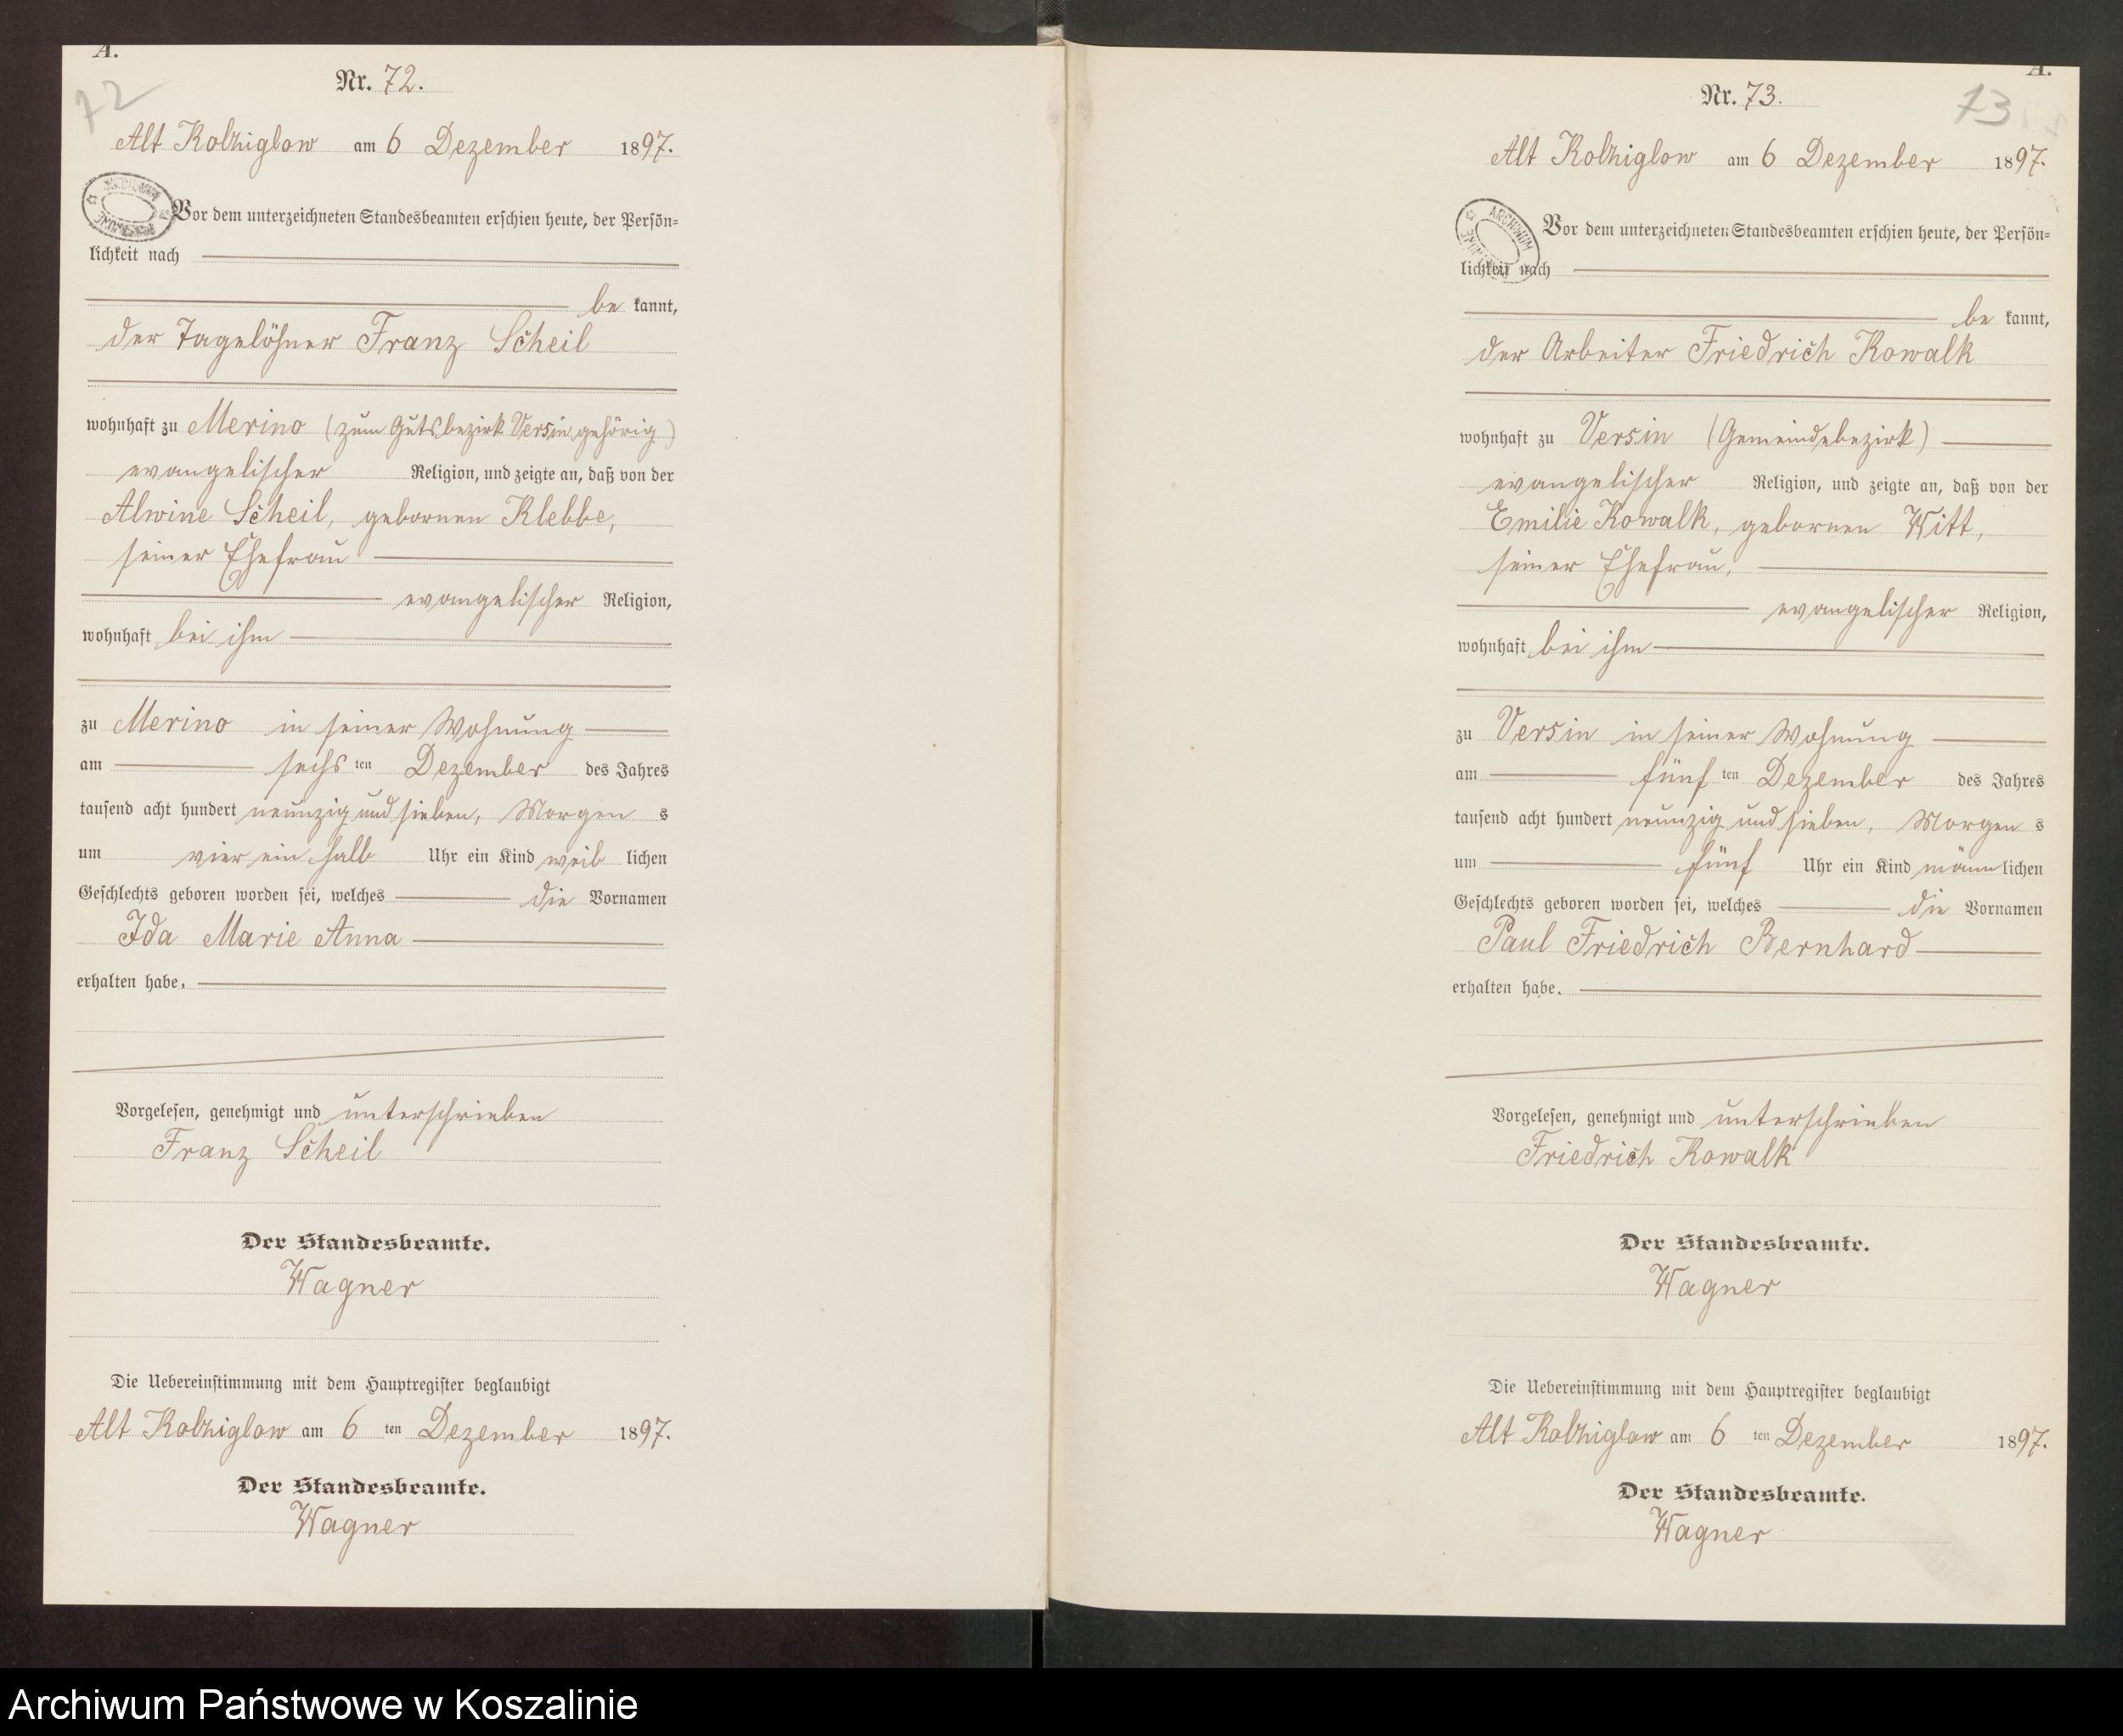 A.
72
Nr. 72.
Alt Kolziglow am 6 Dezember 1897.
Vor dem unterzeichneten Standesbeamten erschien heute, der Persön-
lichkeit nach
be kannt,
der Tagelöhner Franz Scheil
wohnhaft zu Merino (zum Gutsbezirk Versin gehörig)
evangelischer Religion, und zeigte an, daß von der
Alwine Scheil, gebornen Klebbe,
seiner Ehefrau
evangelischer Religion,
wohnhaft bei ihm
zu Merino in seiner Wohnung
am sechs ten Dezember des Jahres
tausend acht hundert neunzig und sieben, Morgen s
um vier ein halb Uhr ein Kind weib lichen
Geschlechts geboren worden sei, welches die Vornamen
Ida Marie Anna
erhalten habe.
Vorgelesen, genehmigt und unterschrieben
Franz Scheil
Der Standesbeamte.
Wagner
Die Uebereinstimmung mit dem Hauptregister beglaubigt
Alt Kolziglow am 6 ten Dezember 1897.
Der Standesbeamte.
Wagner
A.
73
Nr. 73.
Alt Kolziglow am 6 Dezember 1897.
ARCHIWUM
Vor dem unterzeichneten Standesbeamten erschien heute, der Persön-
lichkeit nach
be kannt,
der Arbeiter Friedrich Kowalk
wohnhaft zu Versin (Gemeindebezirk)
evangelischer Religion, und zeigte an, daß von der
Emilie Kowalk, gebornen Witt,
seiner Ehefrau,
evangelischer Religion,
wohnhaft bei ihm
zu Versin in seiner Wohnung
am fünf ten Dezember des Jahres
tausend acht hundert neunzig und sieben, Morgen s
um fünf Uhr ein Kind männ lichen
Geschlechts geboren worden sei, welches die Vornamen
Paul Friedrich Bernhard
erhalten habe.
Vorgelesen, genehmigt und unterschrieben
Friedrich Kowalk
Der Standesbeamte.
Wagner
Die Uebereinstimmung mit dem Hauptregister beglaubigt
Alt Kolziglow am 6 ten Dezember 1897.
Der Standesbeamte.
Wagner
Archiwum Państwowe w Koszalinie